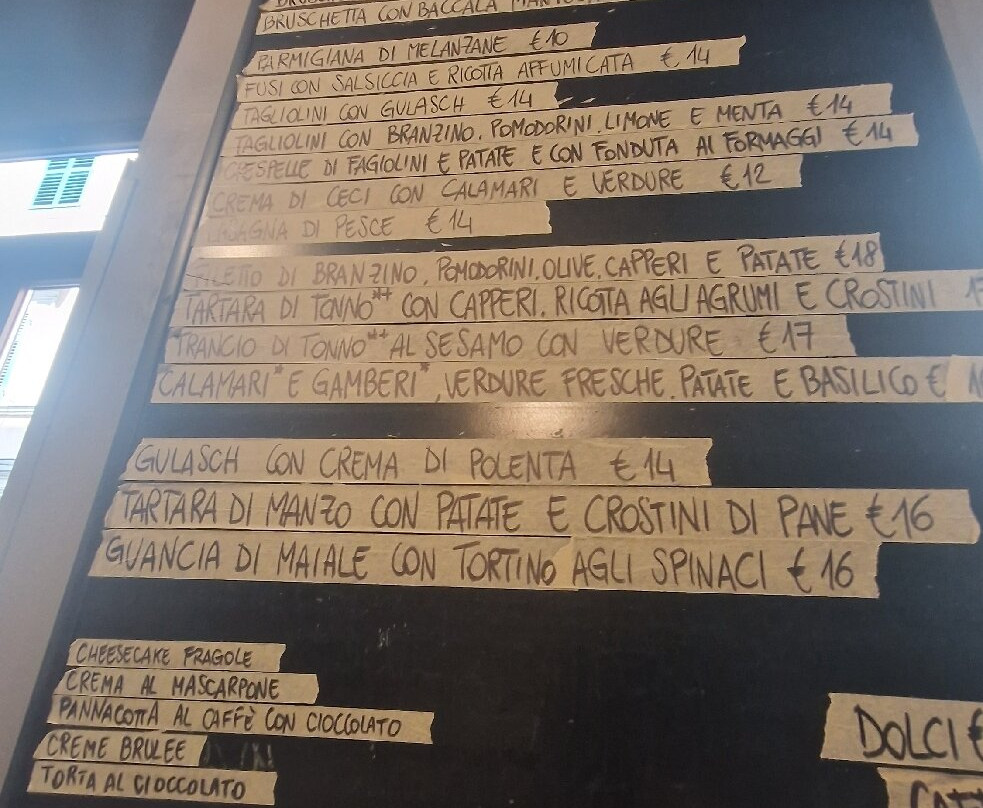 BRUSCHETTA CON BACCALÀ
PARMIGIANA DI MELANZANE €10
FUSI CON SALSICCIA E RICOTTA AFFUMICATA €14
TAGLIOLINI CON GULASCH €14
TAGLIOLINI CON BRANZINO, POMODORINI, LIMONE E MENTA €14
CRESPELLE DI FAGIOLINI E PATATE E CON FONDUTA AI FORMAGGI €14
CREMA DI CECI CON CALAMARI E VERDURE €12
LASAGNA DI PESCE €14
FILETTO DI BRANZINO, POMODORINI, OLIVE, CAPPERI E PATATE €18
TARTARA DI TONNO** CON CAPPERI, RICOTTA AGLI AGRUMI E CROSTINI
TRANCIO DI TONNO** AL SESAMO CON VERDURE €17
CALAMARI* E GAMBERI*, VERDURE FRESCHE, PATATE E BASILICO €
GULASCH CON CREMA DI POLENTA €14
TARTARA DI MANZO CON PATATE E CROSTINI DI PANE €16
GUANCIA DI MAIALE CON TORTINO AGLI SPINACI €16
CHEESECAKE FRAGOLE
CREMA AL MASCARPONE
PANNACOTTA AL CAFFÈ CON CIOCCOLATO
CREME BRULEE
TORTA AL CIOCCOLATO
DOLCI €